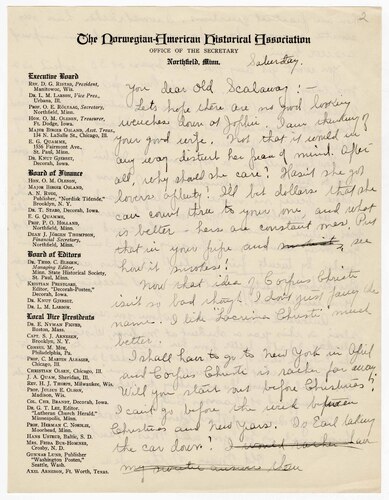 2
The Norwegian-American Historical Association
OFFICE OF THE SECRETARY
Northfield, Minn.
Saturday.
Executive Board
REV. D. G. RISTAD, President,
Manitowoc, Wis.
DR. L. M. LARSON, Vice Pres.,
Urbana, Ill.
PROF. O. E. ROLVAAG, Secretary,
Northfield, Minn.
HON. O. M. OLESON, Treasurer,
Ft. Dodge, Iowa
MAJOR BIRGER OSLAND, Asst. Treas.,
134 N. LaSalle St., Chicago, Ill.
E. G. QUAMME,
1356 Fairmont Ave.,
St. Paul, Minn.
DR. KNUT GJERSET,
Decorah, Iowa.
Board of Finance
HON. O. M. OLESON,
MAJOR BIRGER OSLAND,
A. N. RYGG,
Publisher, "Nordisk Tidende,"
Brooklyn, N. Y.
DR. T. STABO, Decorah, Iowa.
E. G. QUAMME,
PROF. P. O. HOLLAND,
Northfield, Minn.
DEAN J. JÖRGEN THOMPSON,
Financial Secretary,
Northfield, Minn.
Board of Editors
DR. THEO. C. BLEGEN,
Managing Editor,
Minn. State Historical Society,
St. Paul, Minn.
KRISTIAN PRESTGARD,
Editor, "Decorah-Posten,"
Decorah, Iowa.
DR. KNUT GJERSET,
DR. L. M. LARSON.
Local Vice Presidents
DR. E. NYMAN FIGVED,
Boston, Mass.
CAPT. S. J. ARNESEN,
Brooklyn, N. Y.
CONSUL M. MOE,
Philadelphia, Pa.
PROF. C. MARTIN ALSAGER,
Chicago, Ill.
CHRISTIAN OLSEN, Chicago, Ill.
J. A. QUAM, Sheridan, Ill.
REV. H. J. THORPE, Milwaukee, Wis.
PROF. JULIUS E. OLSON,
Madison, Wis.
COL. CHR. BRANDT, Decorah, Iowa
DR. G. T. LEE, Editor
"Lutheran Church Herald."
Minneapolis, Minn.
PROF. HERMAN C. NORDLIE,
Moorhead, Minn.
HANS USTRUD, Baltic, S. D.
MRS. FRIDA BUE-HOMNES,
Crosby, N. D.
GUNNAR LUND, Publisher
"Washington Posten,"
Seattle, Wash.
AXEL ARNESON, Ft. Worth, Texas.
You dear Old Scalawag: —
Let's hope there are no good looking
wenches down at Joplin. I am thinking of
your good wife. Not that it would in
any way disturb her peace of mind. After
all, why should she care? Hasn't she got
lovers aplenty! I'll bet dollars that she
can count three to your one and what
is better – hers are constant ones. Put
that in your pipe and see
how it smokes!
Now that idea of Corpus Christi
isn't so bad though I don't just fancy the
name. I like 'Lacrima Christi' much
better.
I shall have to go to New York in April
and Corpus Christi is rather far away.
Will you start out before Christmas?
I can't go before the week between
Christmas and New Years. Is Earl taking
the car down? I would rather
my